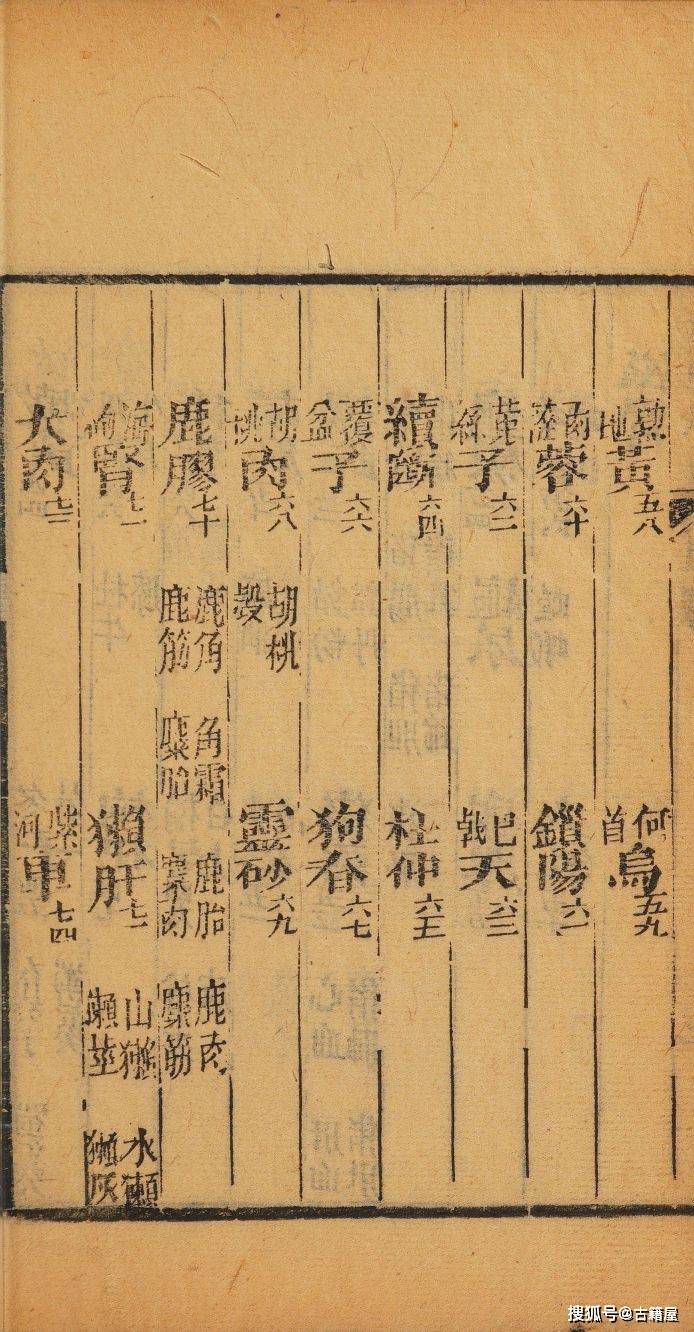 熟地黃五八 何首烏五九
肉蓯蓉六十 鎖陽六一
菟絲子六二 巴戟天六三
續斷六四 杜仲六五
覆盆子六六 狗脊六七
胡桃肉六八 胡桃殼 靈砂六九
鹿膠七十 鹿角 鹿筋 角霜 麋胎 鹿胎 麋肉 鹿肉 麋筋
海狗腎七一 獺肝七二 山獺 獺莖 水獺 獺灰
犬肉七三 紫河車七四
搜狐号@古籍屋